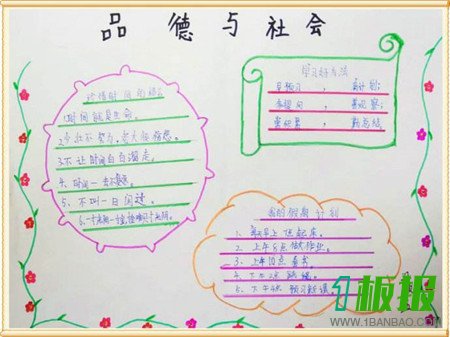 品德与社会
珍惜时间的
1.时间就是生命。
2.少壮不努力,老大徒伤悲。
3.不让时间白白溜走。
4.时间一去不复返。
5.不叫一日闲过。
6.一寸光阴一寸金,寸金难买寸光阴。
学习好方法
预习, 有计划;
多提问, 善观察;
勤总结。
我的假期计划
1、每天早上7点起床。
2、上午8点做作业。
3、上午10点看书。
4、下午2点
5、下午4点预习新课。
1板报
WWW.1BANBAO.COM